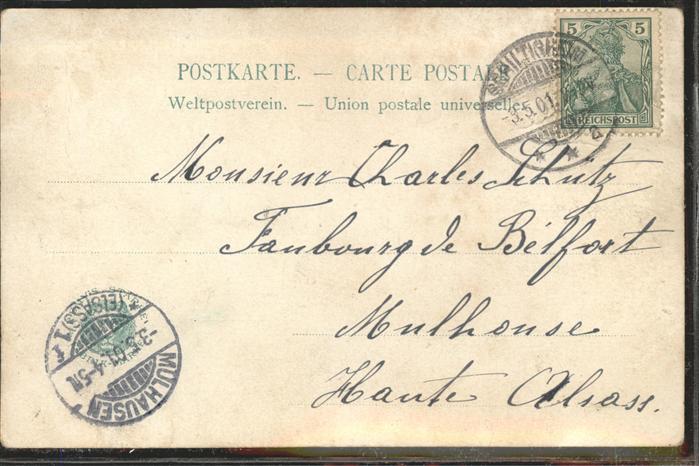 5 5
REICHSPOST
-3.5.01.
POSTKARTE. — CARTE POSTALE
Weltpostverein. — Union postale universelle.
Monsieur Charles Schütz
Faubourg de Bélfort
Mulhouse
Haute Alsass.
MÜLHAUSEN
-3.5.01. 4-5N.
* (ELSASS) 1 f